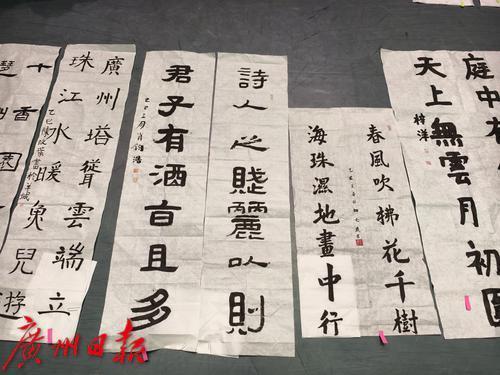 庭中有
天上無雲月初圓
梓洋
春風吹拂花千樹
海珠濕地畫中行
詩人之賦麗以則
君子有酒旨且多
廣州塔聳雲端立
珠江水暖魚兒游
十香園
廣州日報